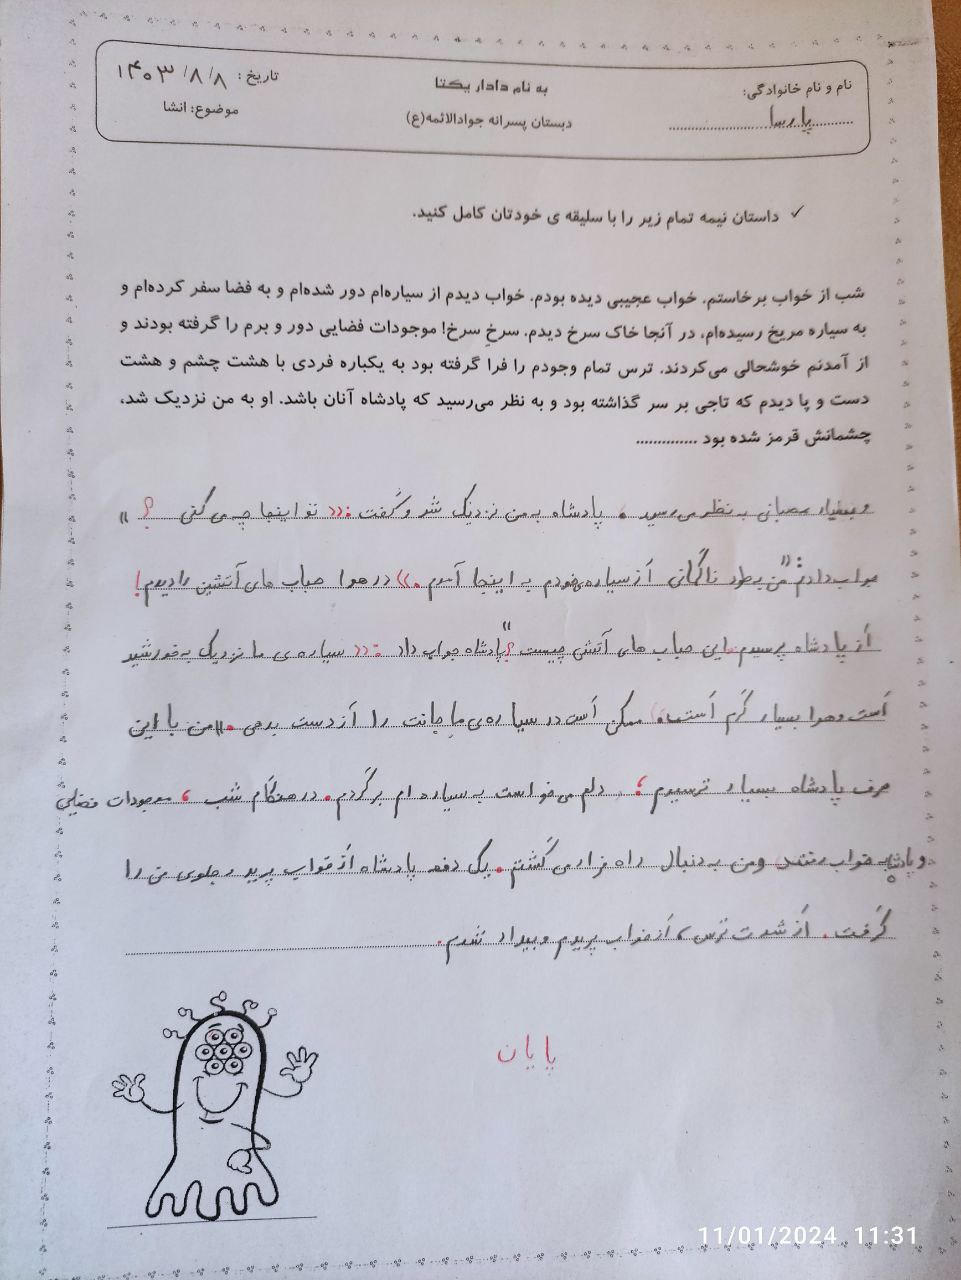 به نام دادار یکتا
نام و نام خانوادگی: پارسا
دبستان پسرانه جوادالائمه(ع)
تاریخ: ۱۴۰۳/۸/۸
موضوع: انشا
✓ داستان نیمه تمام زیر را با سلیقه ی خودتان کامل کنید.
شب از خواب برخاستم. خواب عجیبی دیده بودم. خواب دیدم از سیاره‌ام دور شده‌ام و به فضا سفر کرده‌ام و
به سیاره مریخ رسیده‌ام. در آنجا خاک سرخ دیدم. سرخِ سرخ! موجودات فضایی دور و برم را گرفته بودند و
از آمدنم خوشحالی می‌کردند. ترس تمام وجودم را فرا گرفته بود به یکباره فردی با هشت چشم و هشت
دست و پا دیدم که تاجی بر سر گذاشته بود و به نظر می‌رسید که پادشاه آنان باشد. او به من نزدیک شد،
چشمانش قرمز شده بود ..............
و بسیار عصبانی به نظر می‌رسید. پادشاه به من نزدیک شد و گفت: «تو اینجا چه می کنی ؟»
جواب دادم: «من به طور ناگهانی از سیاره‌ی خودم به اینجا آمدم.» در هوا حباب های آتشین را دیدم!
از پادشاه پرسیدم: این حباب های آتشی چیست؟» پادشاه جواب داد: «سیاره ی ما نزدیک به خورشید
است و هوا بسیار گرم است، ممکن است در سیاره‌ی ما جانت را از دست بدهی.» من با این
حرف پادشاه بسیار ترسیدم؛ دلم می‌خواست به سیاره ام برگردم. در هنگام شب، موجودات فضایی
و پادشاه به خواب رفتند و من به دنبال راه فرار می گشتم. یک دفعه پادشاه از خواب پرید و جلوی من را
گرفت. از شدت ترس، از خواب پریدم و بیدار شدم.
پایان
11/01/2024 11:31